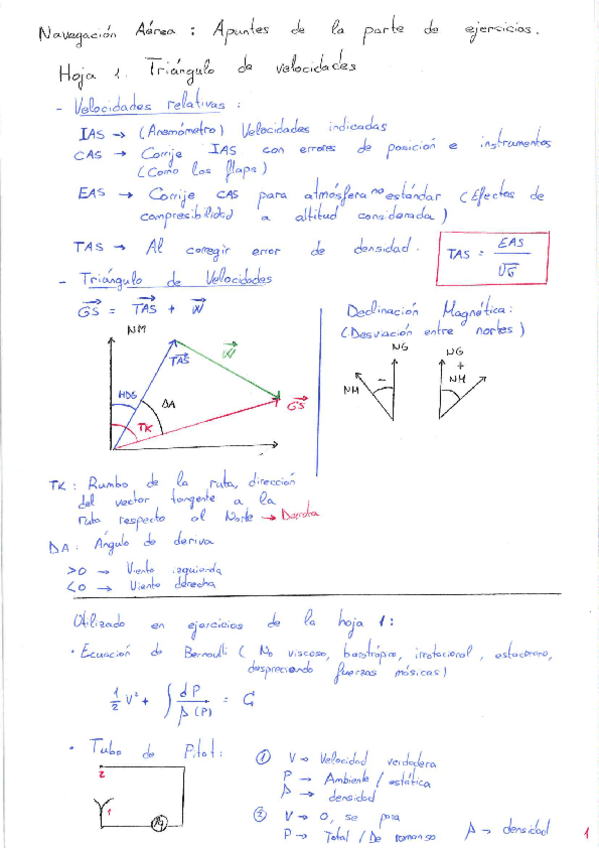 Navegación Aérea : Apuntes de la parte de ejersicios.
Hoja 1. Triángulo de velocidades
- Velocidades relativas :
IAS → (Anemómetro) Velocidades indicadas
CAS → Corrije IAS con errores de posición e instrumentos
(Como los flaps)
EAS → Corrije CAS para atmósfera no estándar (Efectos de
compresibilidad a altitud considerada)
TAS → Al corregir error de densidad.
TAS = EAS / √σ
- Triángulo de Velocidades
GS = TAS + W
Declinación Magnética:
(Desviación entre nortes)
NM
TAS
W
HDG
DA
TK
GS
NG
NM
-
NG
+
NM
TK : Rumbo de la ruta, dirección
del vector tangente a la
ruta respecto al Norte → Derrota
DA : Ángulo de deriva
>0 → Viento izquierda
<0 → Viento derecha
Utilizado en ejercicios de la hoja 1 :
• Ecuación de Bernoulli ( No viscoso, barótropo, irrotacional, estacionario,
despreciando fuerzas másicas)
1/2 V² + ∫ dP / ρ(P) = C
• Tubo de Pitot :
2
1
① V → Velocidad verdadera
P → Ambiente / estática
ρ → densidad
② V → 0, se para
P → Total / De remanso ρ → densidad
1